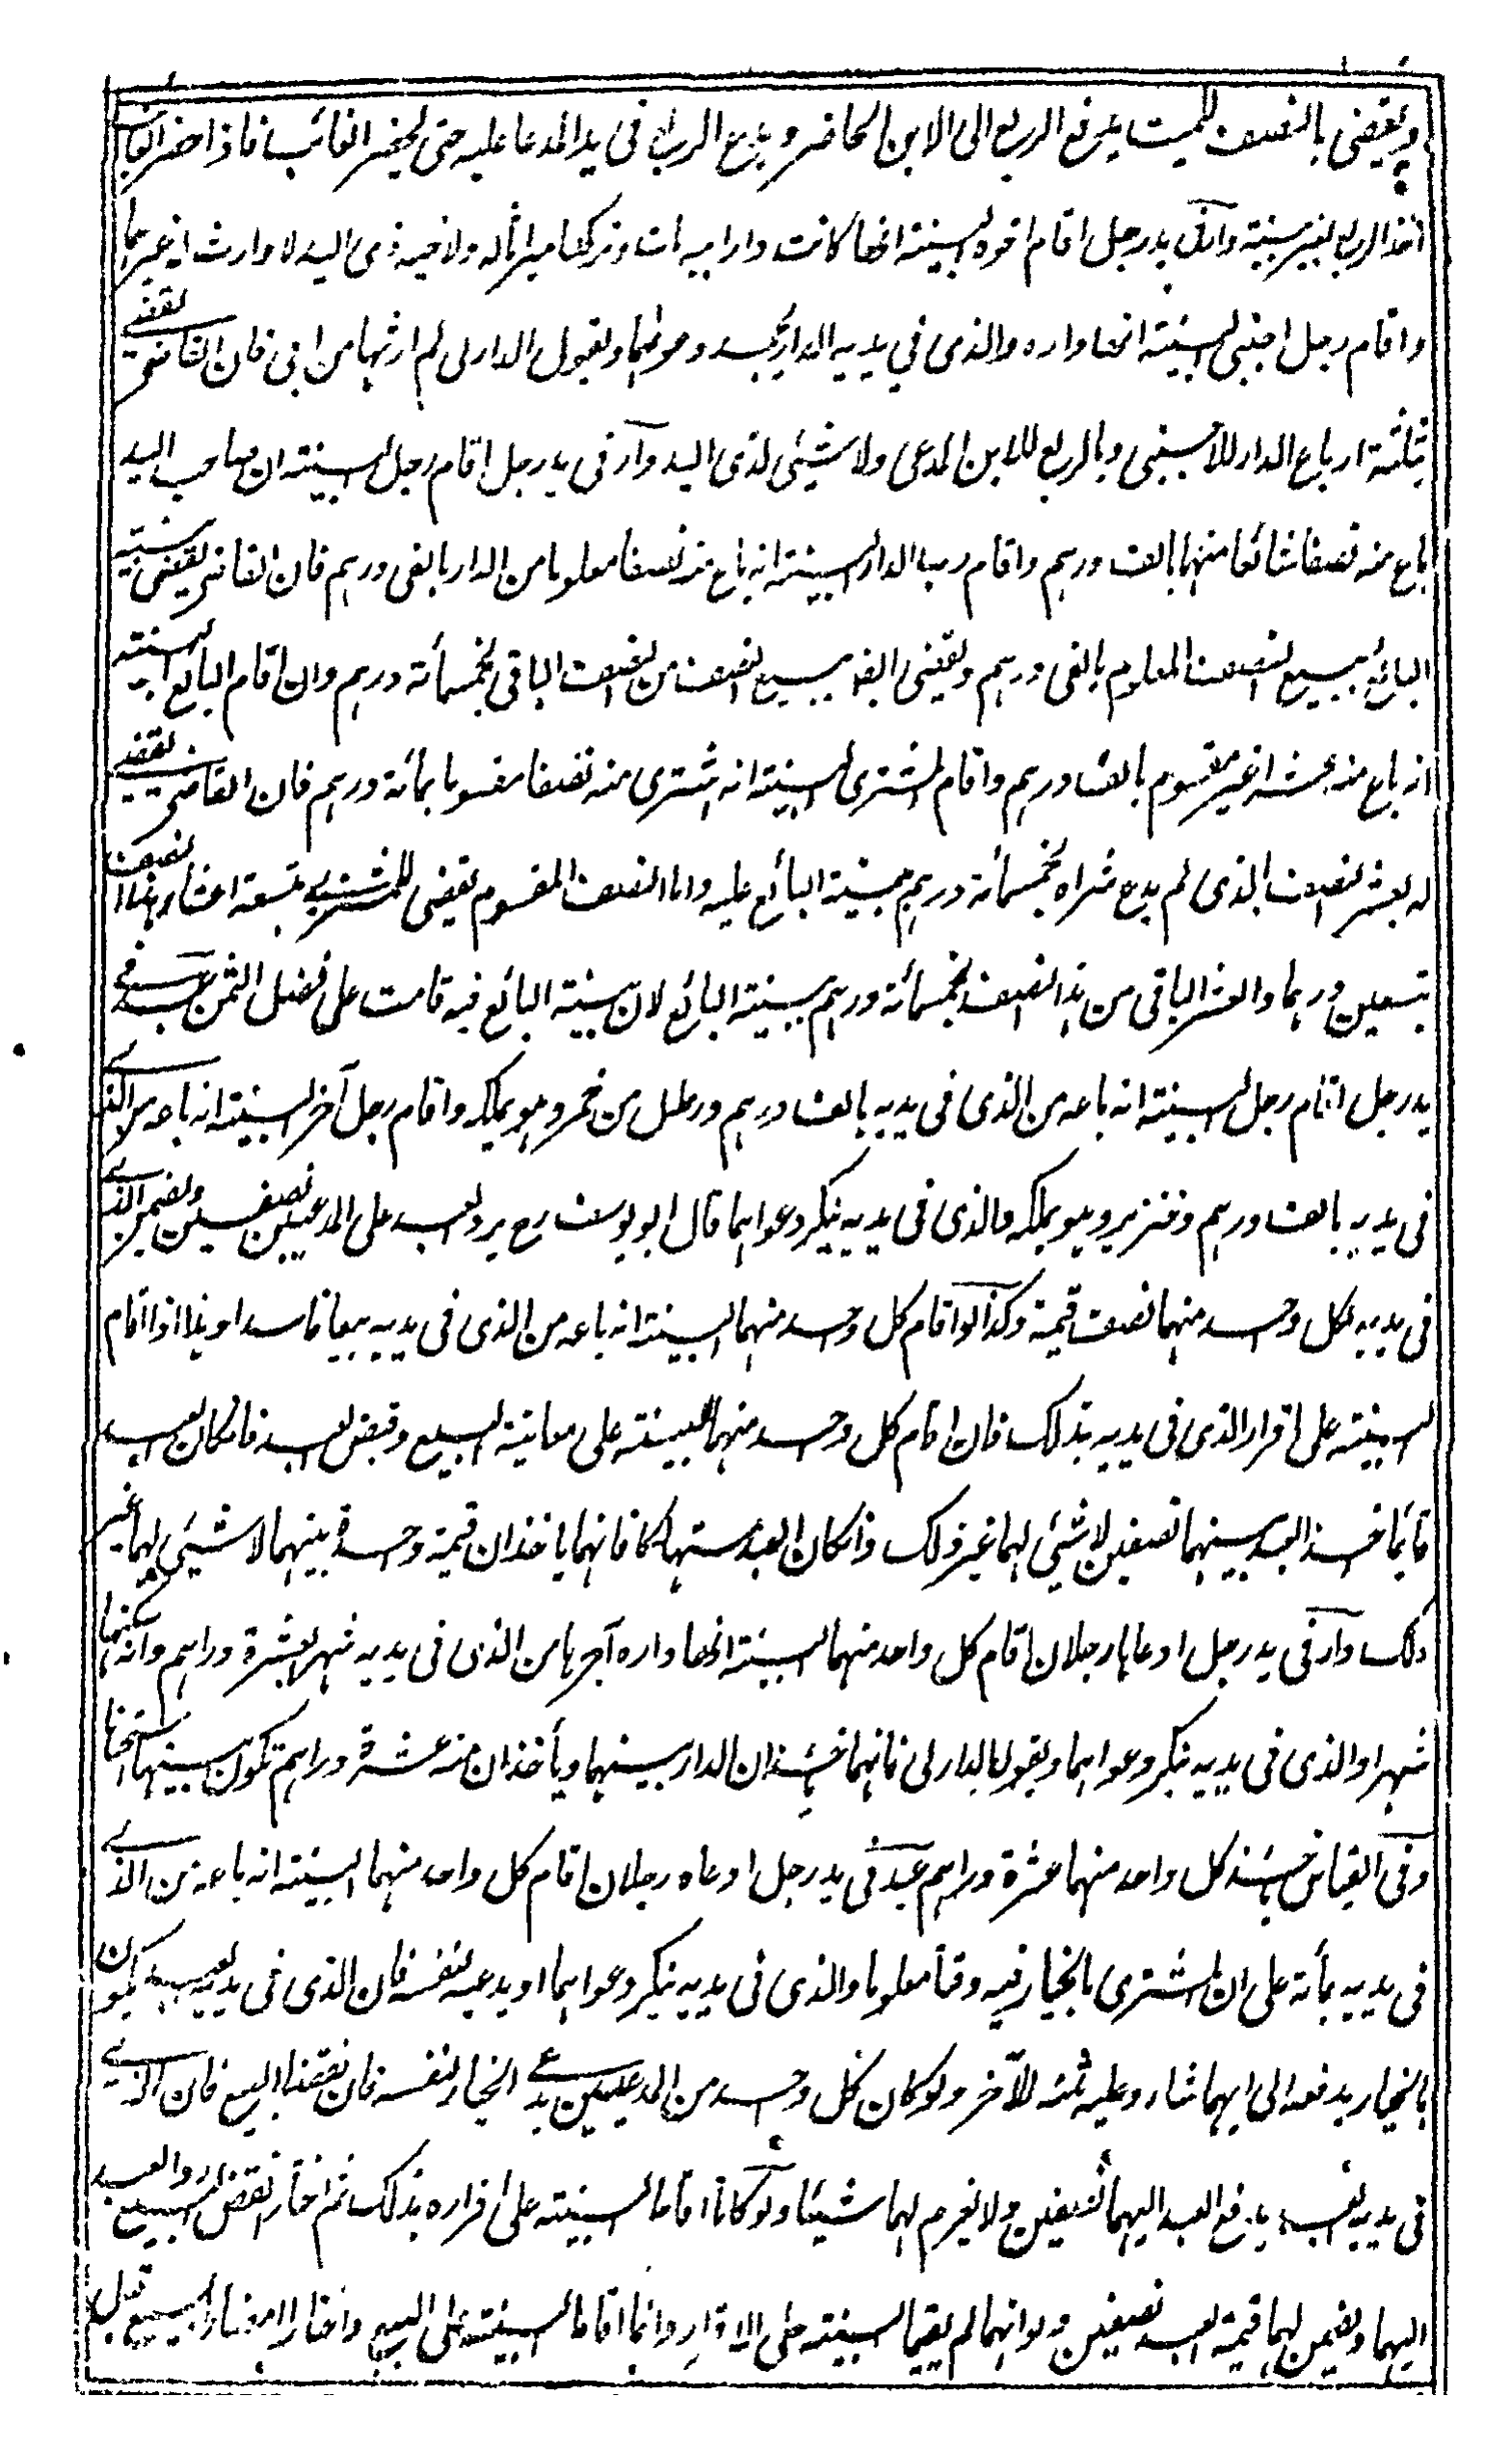 ويقضى بالنصف للميت يدفع الربع الى الابن الحاضر ويدع الربع فى يد المدعا عليه حتى يحضر الغائب فاذا حضر الغائب
اخذ الربع بغير بينة دار فى يد رجل اقام اخوه البينة انها كانت دار ابيه مات وتركها ميراثا له ولاخيه ذى اليد لا وارث له غيرهما
واقام رجل اجنبى البينة انها داره والذى فى يديه الدار يجحد دعوتهما ويقول الدار لى لم ارثها من ابى فان القاضى يقضى
بثلثة ارباع الدار للاجنبى وبالربع للابن المدعى ولا شيئى لذى اليد دار فى يد رجل اقام رجل البينة ان صاحب اليد
باع منه نصفا شائعا منها بالف درهم واقام رب الدار البينة انه باع منه نصفا معلوما من الدار بالفى درهم فان القاضى يقضى ببينة
البائع ببيع النصف المعلوم بالفى درهم ويقضى ايضا ببيع النصف من النصف الباقى بخمسمأئة درهم وان اقام البائع البينة
انه باع منه عشرا غير مقسوم بالف درهم واقام المشترى البينة انه اشترى منه نصفا مقسوما بمائة درهم فان القاضى يقضى
له بعشر النصف الذى لم يدع شراه بخمسمأئة درهم ببينة البائع عليه واما النصف المقسوم يقضى للمشترى بتسعة اعشار هذا النصف
بتسعين درهما والعشر الباقى من هذا النصف بخمسمأئة درهم ببينة البائع لان بينة البائع فيه قامت على فضل الثمن عبد فى
يد رجل اقام رجل البينة انه باعه من الذى فى يديه بالف درهم ورطل من خمر وهو يملكه واقام رجل آخر البينة انه باعه من الذى
فى يديه بالف درهم وخنزير وهو يملكه والذى فى يديه ينكر دعواهما قال ابو يوسف رح يرد العبد على المدعيين نصفين ويضمن الذى
فى يديه لكل واحد منهما نصف قيمة وكذا لو اقام كل واحد منهما البينة انه باعه من الذى فى يديه بيعا فاسدا وهذا اذا اقام
البينة على اقرار الذى فى يديه بذلك فان اقام كل واحد منهما البينة على معاينة البيع وقبض العبد فان كان العبد
قائما اخذ العبد بينهما نصفين لا شيئى لهما غير ذلك وان كان العبد مستهلكا فانهما ياخذان قيمة واحدة بينهما لا شيئى لهما غير
ذلك دار فى يد رجل ادعاها رجلان اقام كل واحد منهما البينة انها داره آجرها من الذى فى يديه شهرا بعشرة دراهم وانه سكنها
شهرا والذى فى يديه ينكر دعواهما ويقول الدار لى فانهما ياخذان الدار بينهما ويأخذان منه عشرة دراهم تكون بينهما استحسانا
وفى القياس ياخذ كل واحد منهما عشرة دراهم عبد فى يد رجل ادعاه رجلان اقام كل واحد منهما البينة انه باعه من الذى
فى يديه بمأئة على ان المشترى بالخيار فيه وقتا معلوما والذى فى يديه ينكر دعواهما او يدعيه لنفسه فان الذى فى يديه العبد يكون
بالخيار يدفعه الى ايهما شاء وعليه ثمنه للآخر ولو كان كل واحد من المدعيين يدعى الخيار لنفسه فان نقضا البيع فان الذى
فى يديه العبد يدفع العبد اليهما نصفين ولا يغرم لهما شيئا ولو كانا اقاما البينة على اقراره بذلك ثم اختار نقض البيع رد العبد
اليهما ويضمن لهما قيمة العبد نصفين ولو انهما لم يقيما البينة على الاقرار وانما اقاما البينة على البيع واختار الامضاء البيع قبل